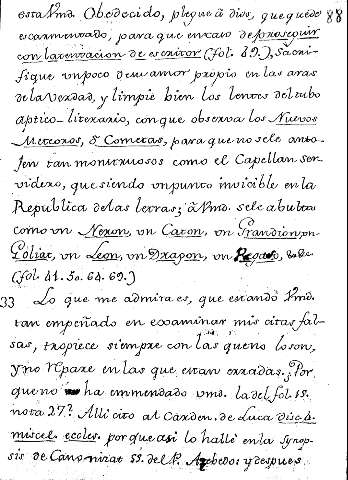 esta Vmd. Obedecido, plegue à dios, que quede 88
escarmentado, para que en caso de proseguir
con la tentacion de escritor (fol. 89.), Sacri-
fique un poco de su amor propio en las aras
de la Verdad, y limpie bien los lentes del tubo
optico-literario, con que observa los Nuevos
Meteoros, ò Cometas, para que no se le anto-
jen tan monstruosos como el Capellan ser-
videro, que siendo un punto invicible en la
Republica de las letras; à Vmd. se le abulta
como un Neron, un Caton, un Grandion, un
Goliat, un Leon, un Dragon, un
(fol. 41. 50. 64. 69.)
33 Lo que me admira es, que estando Vmd.
tan empeñado en exxaminar mis citas fal-
sas, tropiece siempre con las que no lo son,
y no repare en las que estan erradas. ¿Por
que no ha enmendado vmd. la del fol. 15.
nota 27? Alli cito al Carden. de Luca disc. 4.
miscel. eccles. porque asi lo hallè en la synop-
sis de Canonizat. SS. del P. Azebedo: y despues